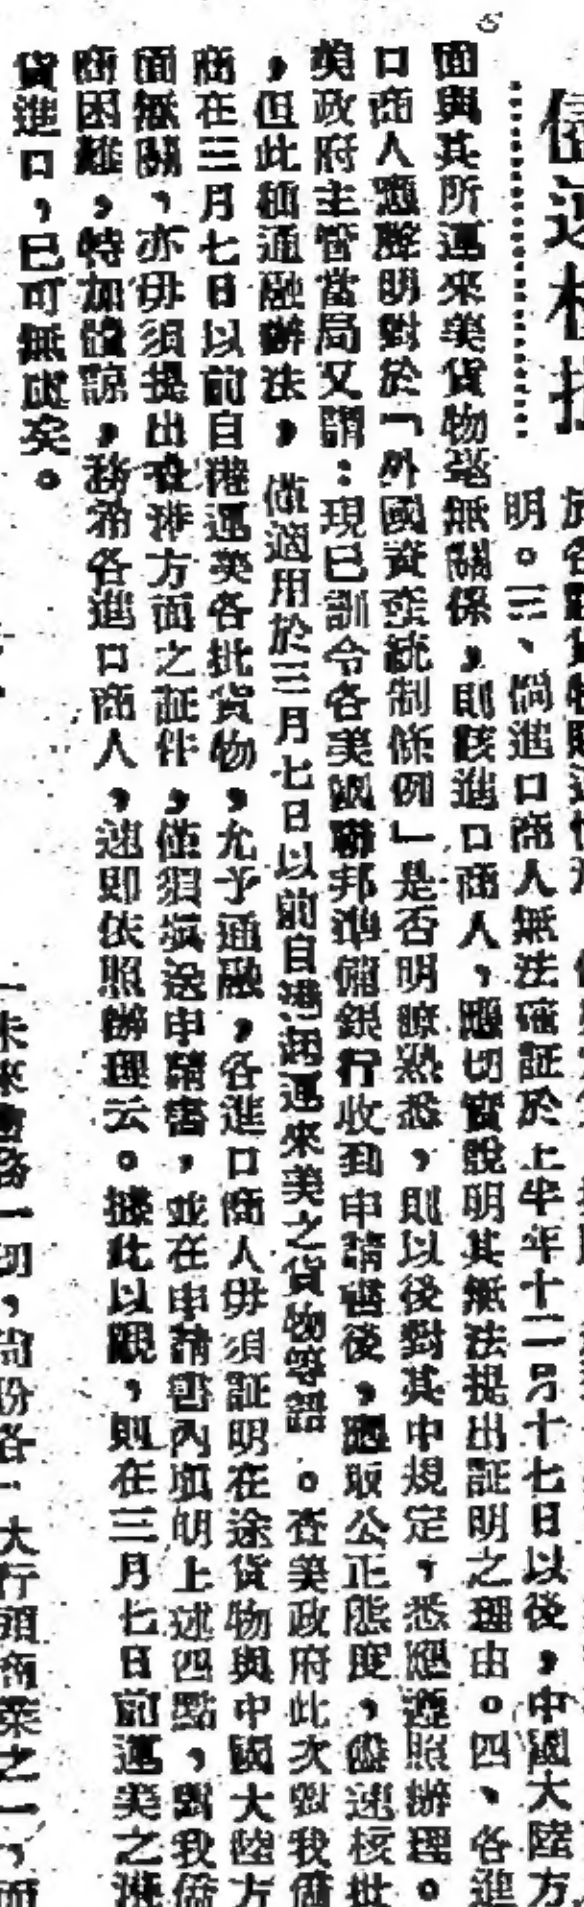 明。三、倘進口商人無法確証於上半年十二月十七日以後，中國大陸方
面與其所運來美貨物毫無關係，則該進口商人，應切實說明其無法提出証明之理由。四、各進
口商人應聲明對於「外國資產統制條例」是否明瞭熟悉，則以後對其中規定，悉應遵照辦理。
美政府主管當局又謂：現已訓令各美國聯邦準備銀行收到申請書後，應取公正態度，儘速核批
，但此種通融辦法，僅適用於三月七日以前自港起運來美之貨物等語。查美政府此次對我僑
商在三月七日以前自港運美各批貨物，允予通融，各進口商人毋須証明在途貨物與中國大陸方
面無關，亦毋須提出在港方面之証件，僅須填送申請書，並在申請書內填明上述四點，對我僑
商困難，特加體諒，務希各進口商人，速即依照辦理云。據此以觀，則在三月七日前運美之港
貨進口，已可無慮矣。